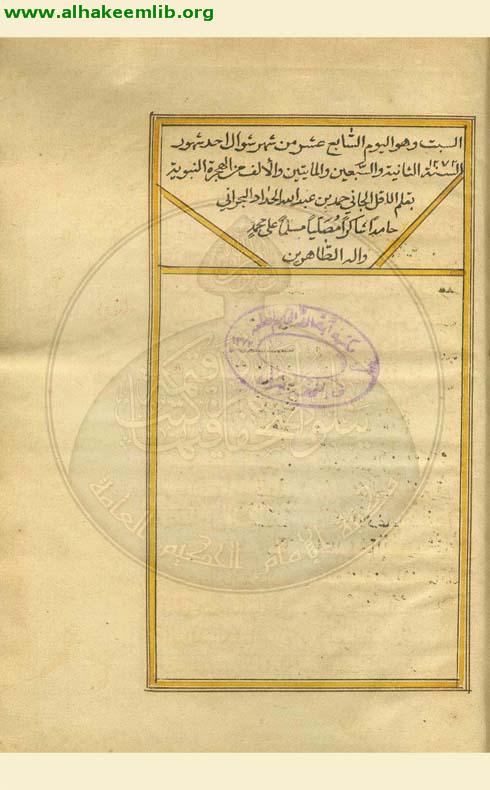 www.alhakeemlib.org
السبت وهو اليوم السابع عشر من شهر شوال احد شهور
١٢٧٢
السنة الثانية والسبعين والمايتين والألف من الهجرة النبوية
بقلم الاقل الجاني حمد بن عبد الله الحداد البحراني
حامداً شاكراً مصلياً مسلماً على محمدٍ
واله الطاهرين
مكتبة الإمام الحكيم العامة